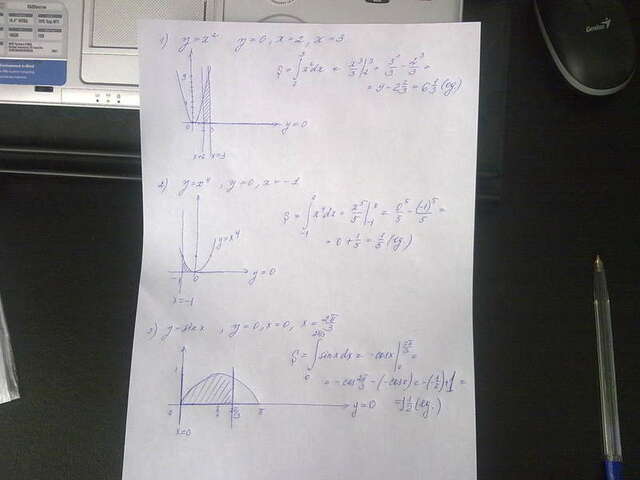 1) y=x² y=0, x=2, x=3
S = ∫₂³ x²dx = x³/3 |₂³ = 3³/3 - 2³/3 =
= 9 - 2 2/3 = 6 1/3 (ед)
y
9
0
y=0
x=2 x=3
2) y=x⁴, y=0, x=-1
S = ∫₋₁⁰ x⁴dx = x⁵/5 |₋₁⁰ = 0⁵/5 - (-1)⁵/5 =
= 0 + 1/5 = 1/5 (ед.)
y=x⁴
-1 0 y=0
x=-1
3) y=sinx, y=0, x=0, x= 2π/3
S = ∫₀^(2π/3) sinxdx = -cosx |₀^(2π/3) =
= -cos 2π/3 - (-cos0) = -(-1/2)+1 =
= 1 1/2 (ед.)
1
0 π/2 2π/3 π y=0
x=0
Genius